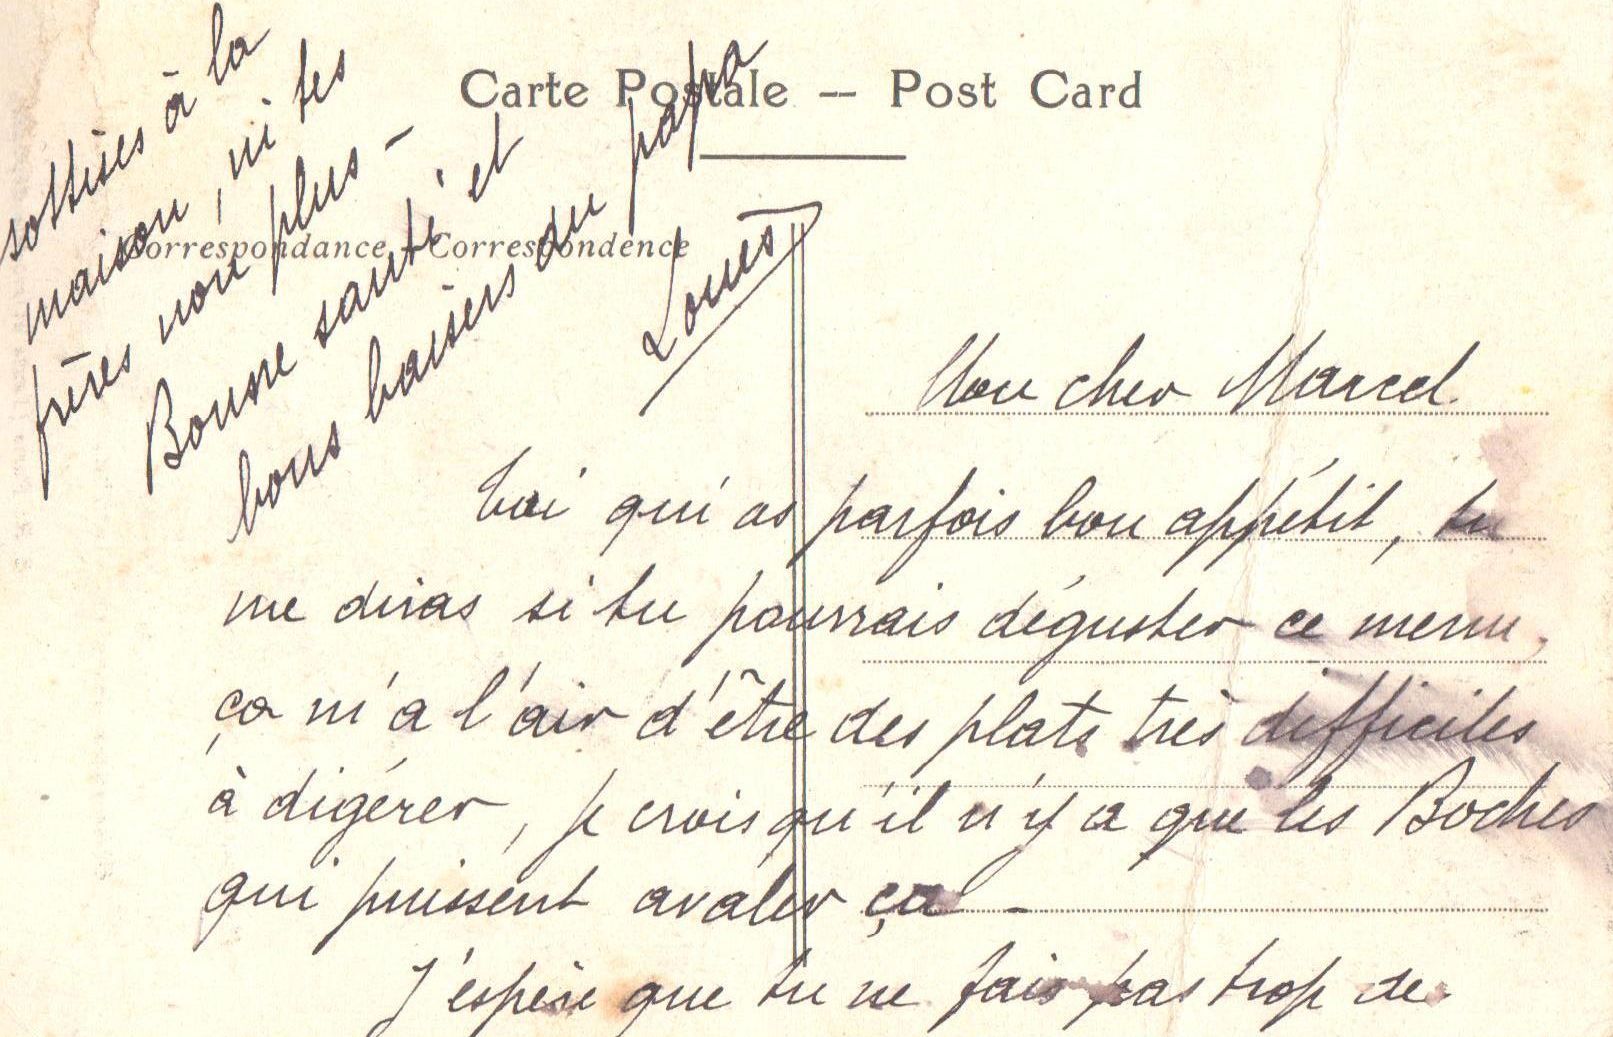 Carte Postale — Post Card
Correspondance - Correspondence
Mon cher Marcel.
Toi qui as parfois bon appétit, tu
me diras si tu pourrais déguster ce menu,
ça m'a l'air d'être des plats très difficiles
à digérer, je crois qu'il n'y a que les Boches
qui puissent avaler ça —
J'espère que tu ne fais pas trop de
sottises à la
maison, ni tes
frères non plus —
Bonne santé et
bons baisers du papa
Louis